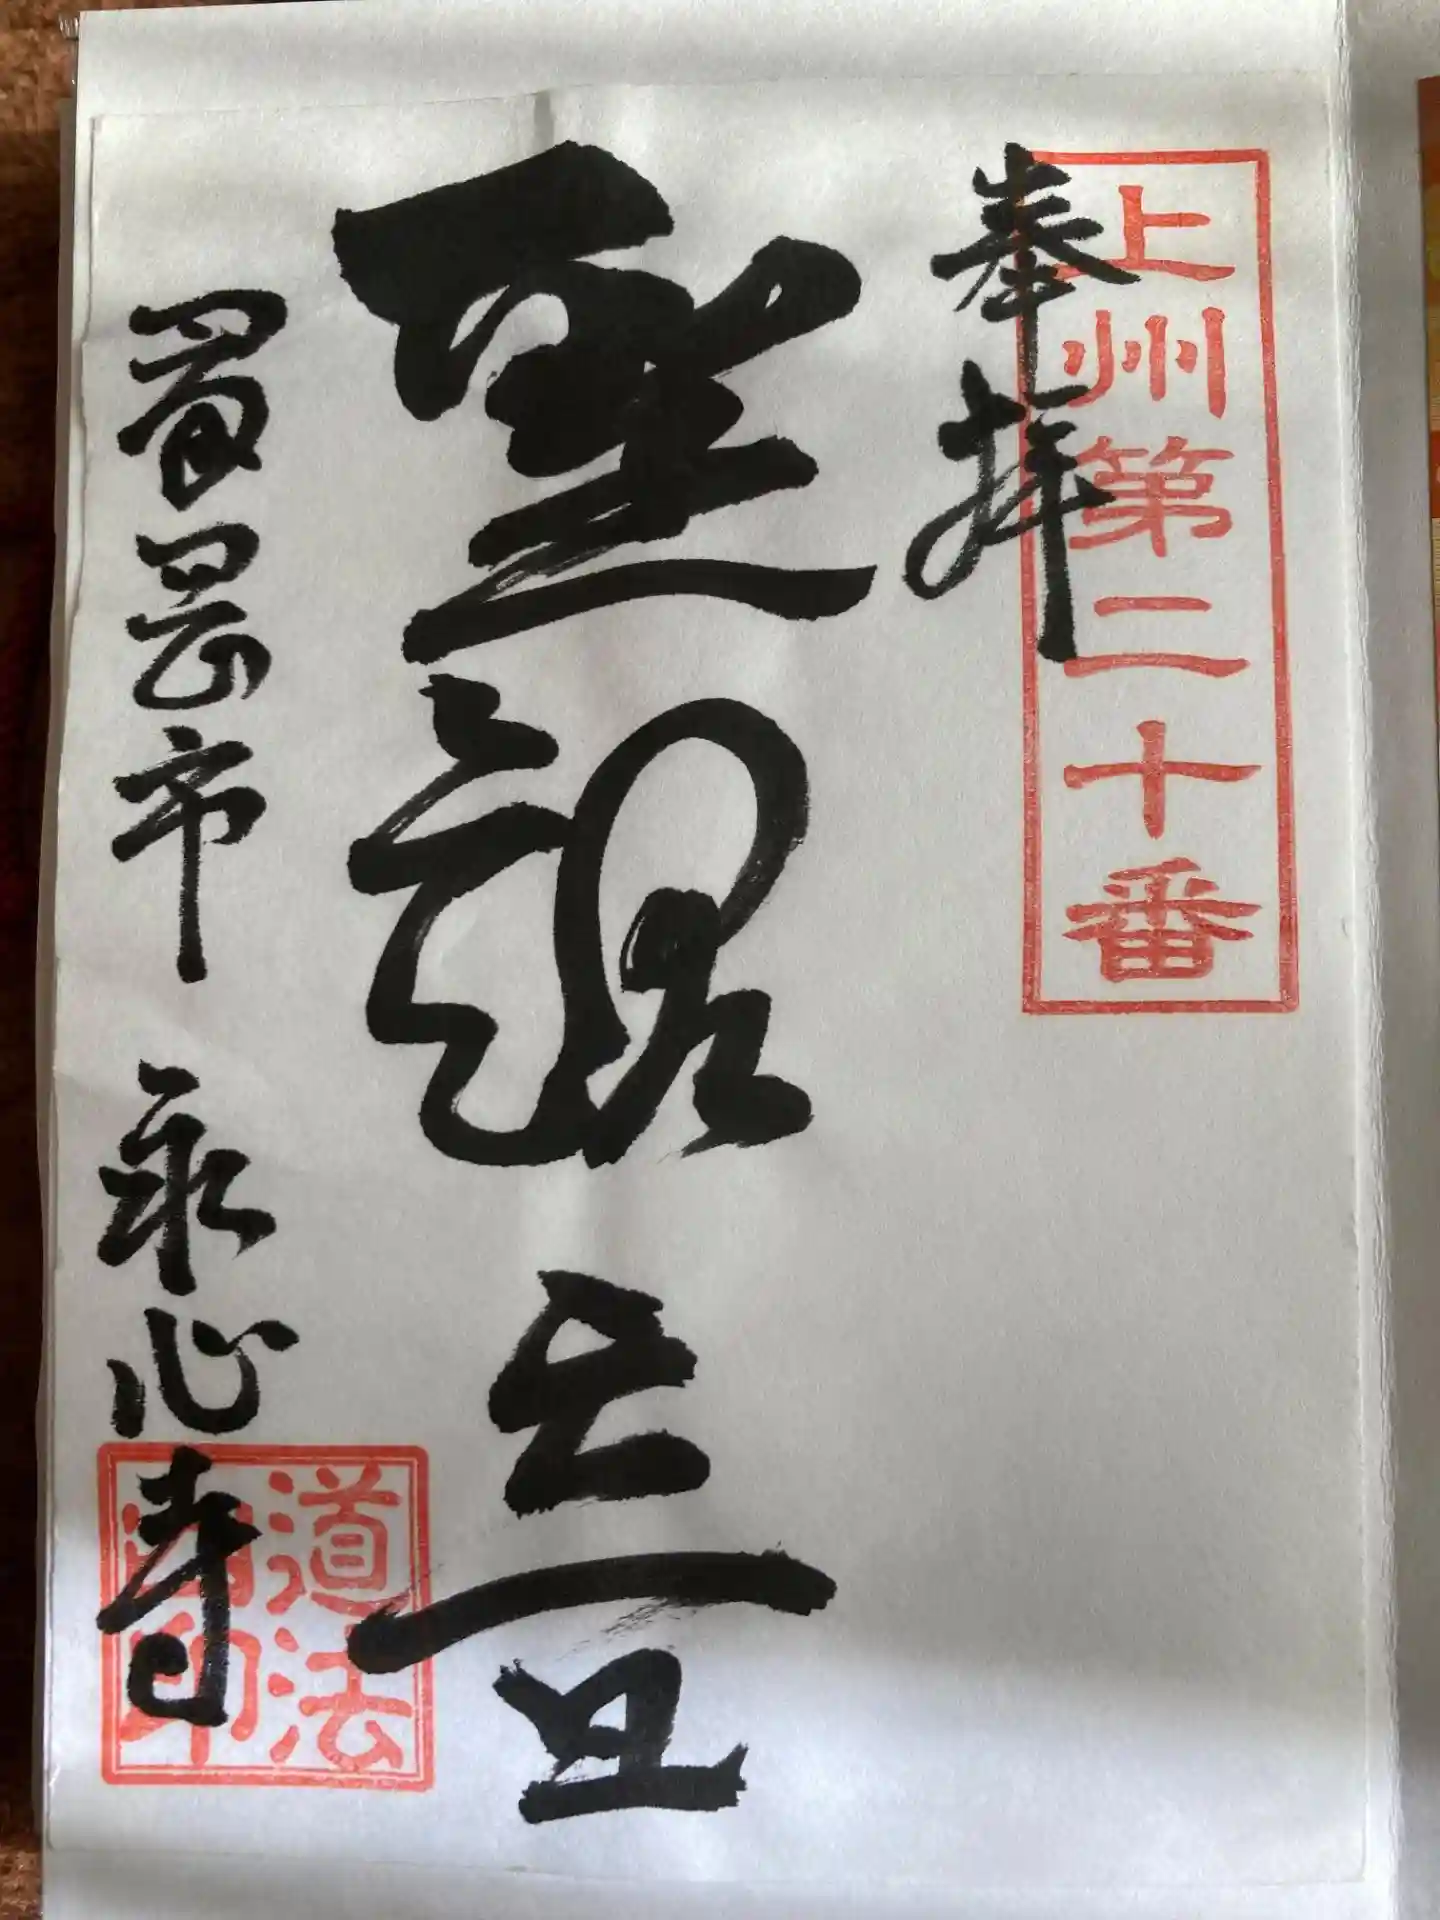 上州第二十番
奉拝
聖観世音
富岡市 永心寺
道法